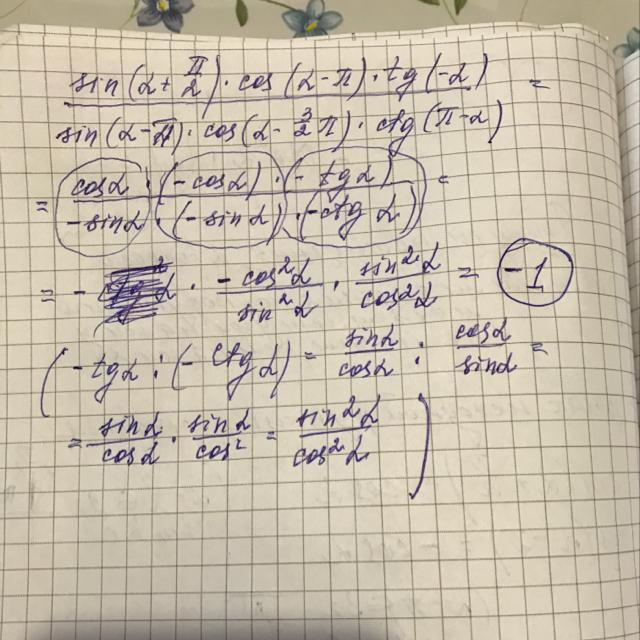 sin(α+π/2)·cos(α-π)·tg(-α) =
sin(α-π)·cos(α-3/2π)·ctg(π-α)
= cosα·(-cosα)·(-tgα) =
-sinα·(-sinα)·(-ctgα)
= - · -cos²α/sin²α · sin²α/cos²α = -1
(-tgα:(-ctgα) = sinα/cosα : cosα/sinα =
= sinα/cosα · sinα/cos² = sin²α/cos²α)